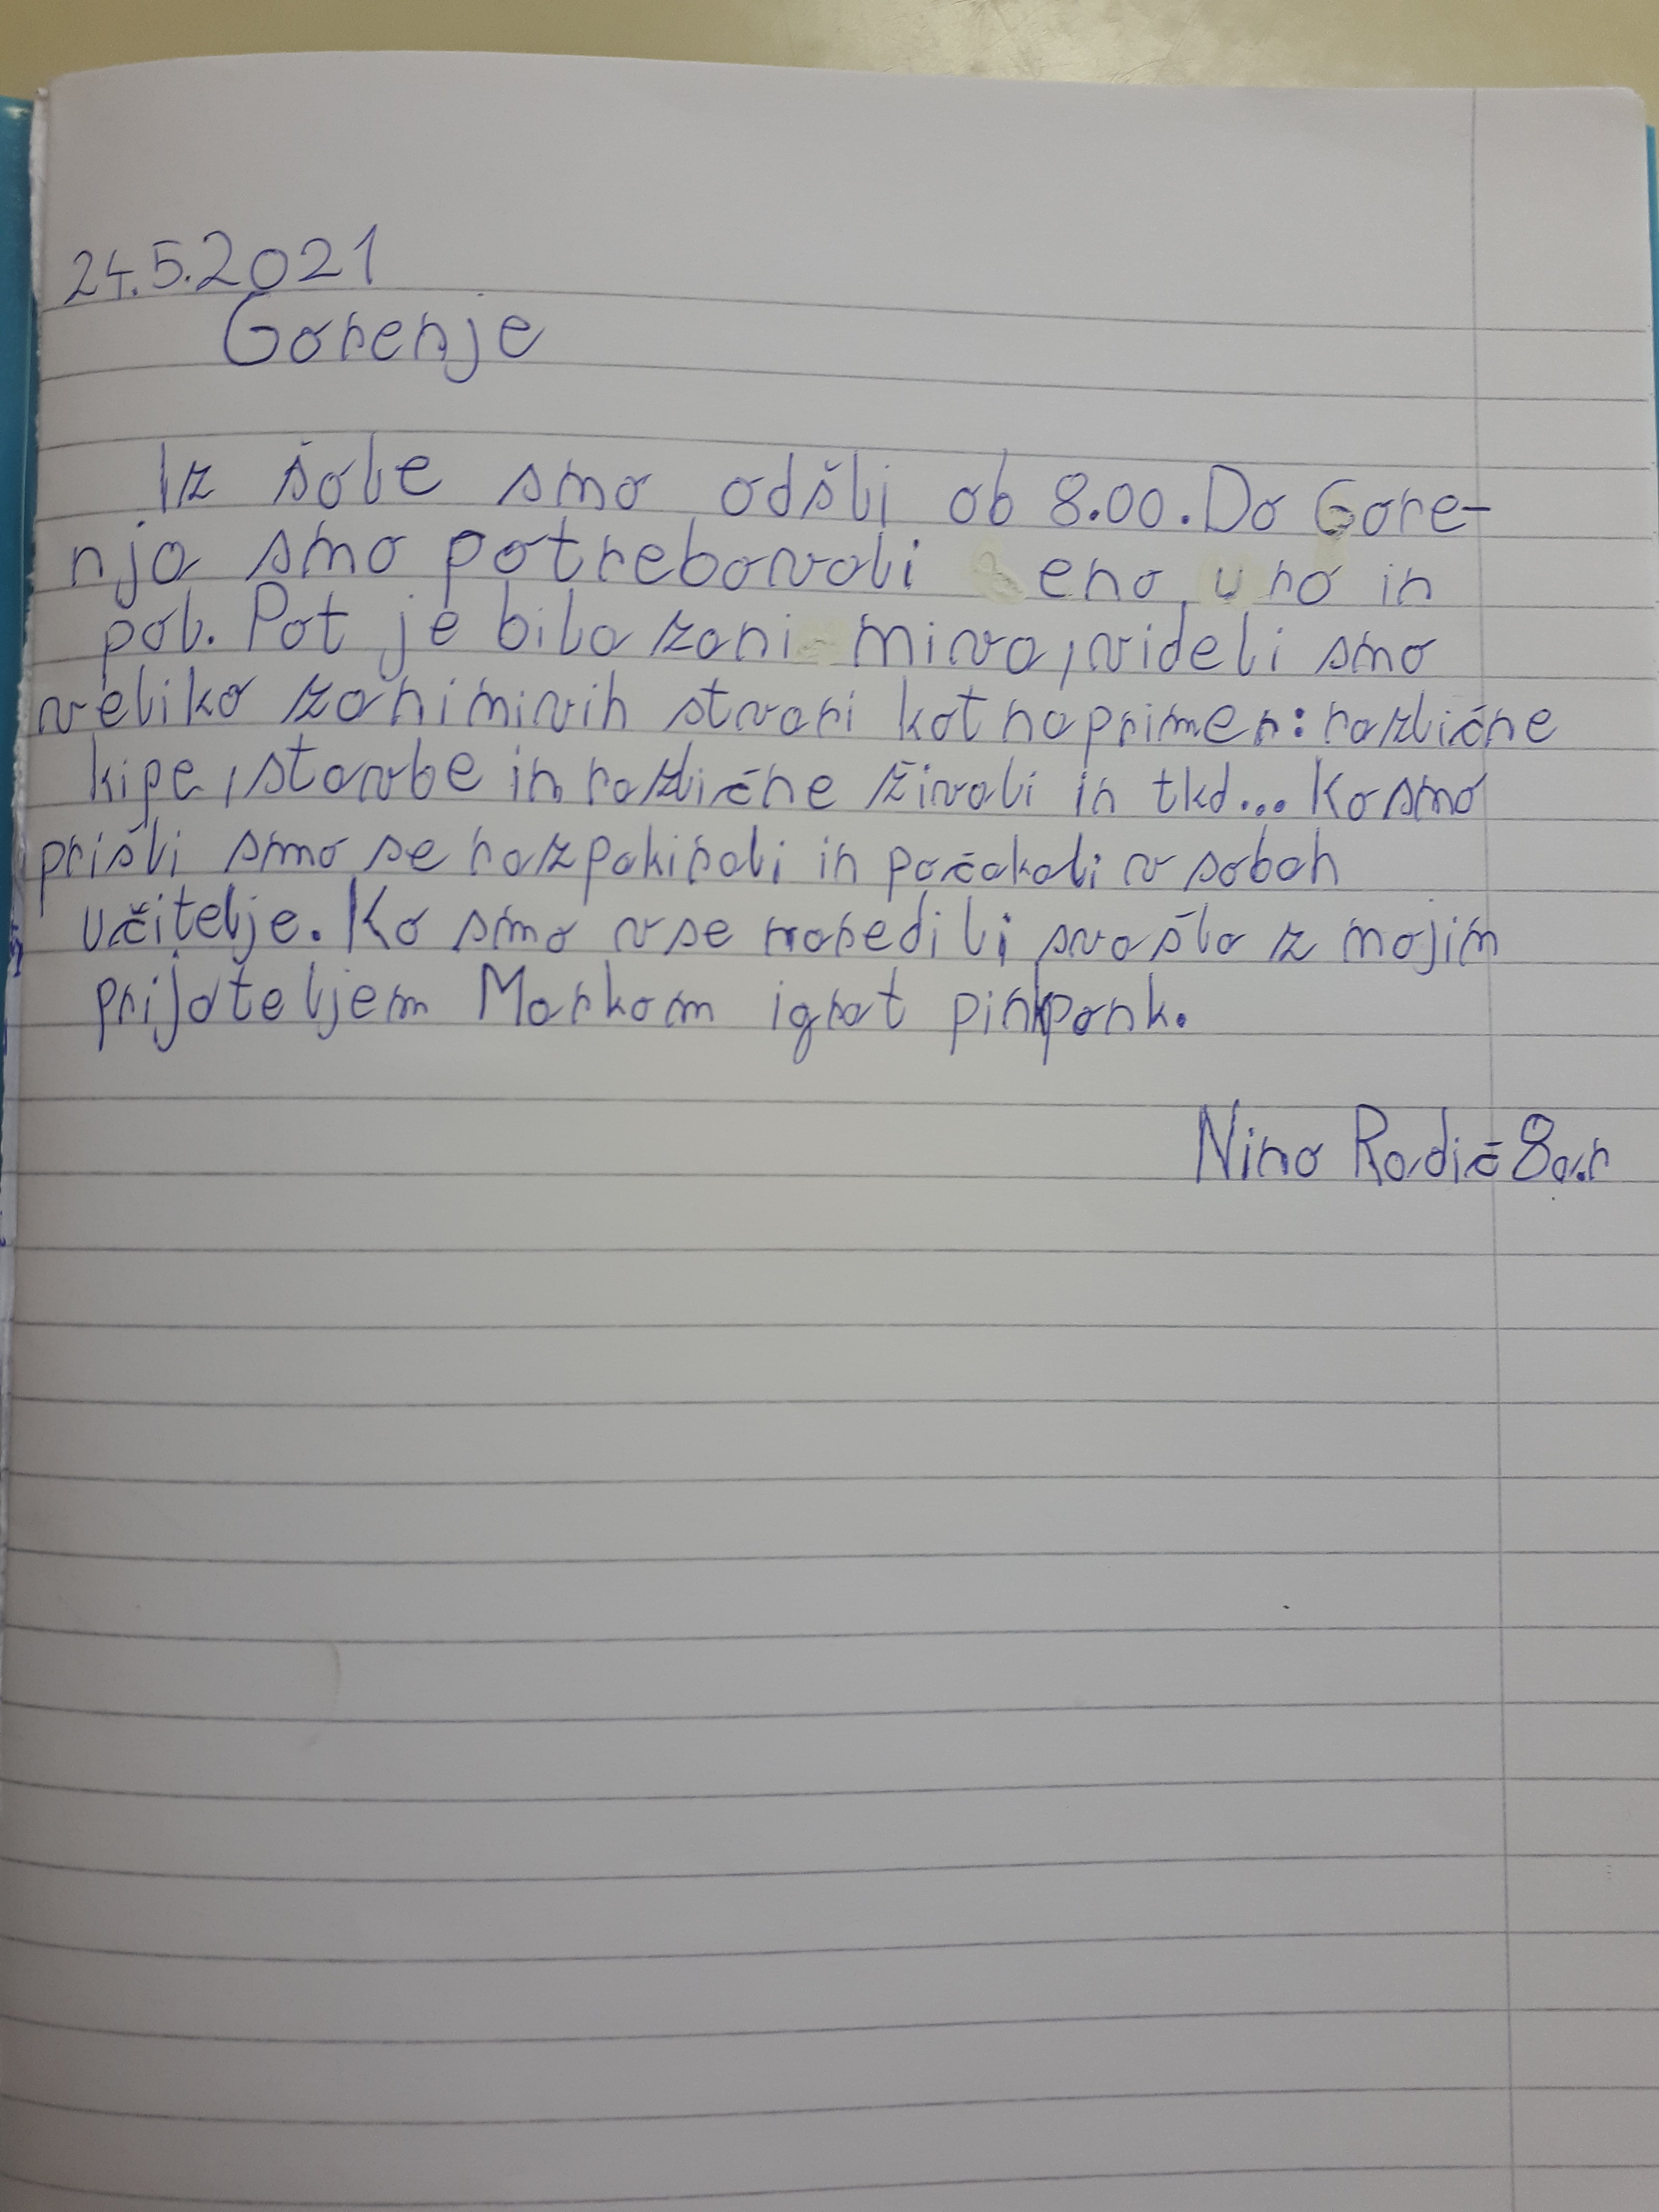 24.5.2021
Gorenje
Iz šole smo odšli ob 8.00. Do Gore-
nja smo potrebovali eno uro in
pol. Pot je bila zani miva, videli smo
veliko zanimivih stvari kot naprimer: različne
kipe, stavbe in različne živali in tkd... Ko smo
prišli smo se razpakirali in počakali v sobah
učitelje. Ko smo vse naredili sva šla z mojim
prijateljem Markom igrat pinkponk.
Nino Radič 8a.r